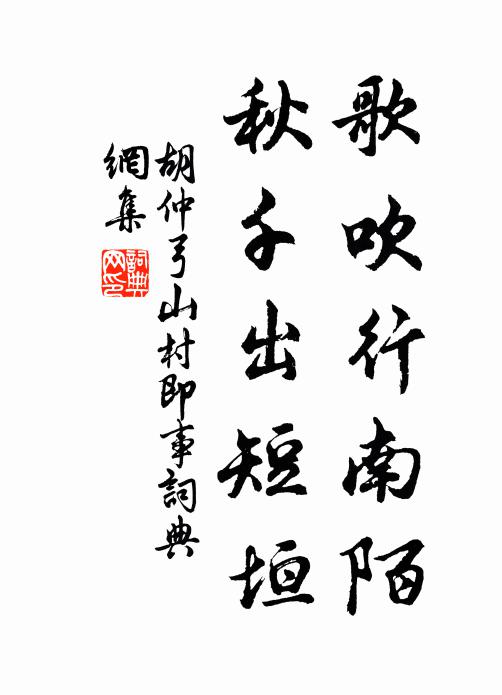 歌吹行南陌
秋千出短垣
胡仲弓山村即事詞典
網集
詞典
网印